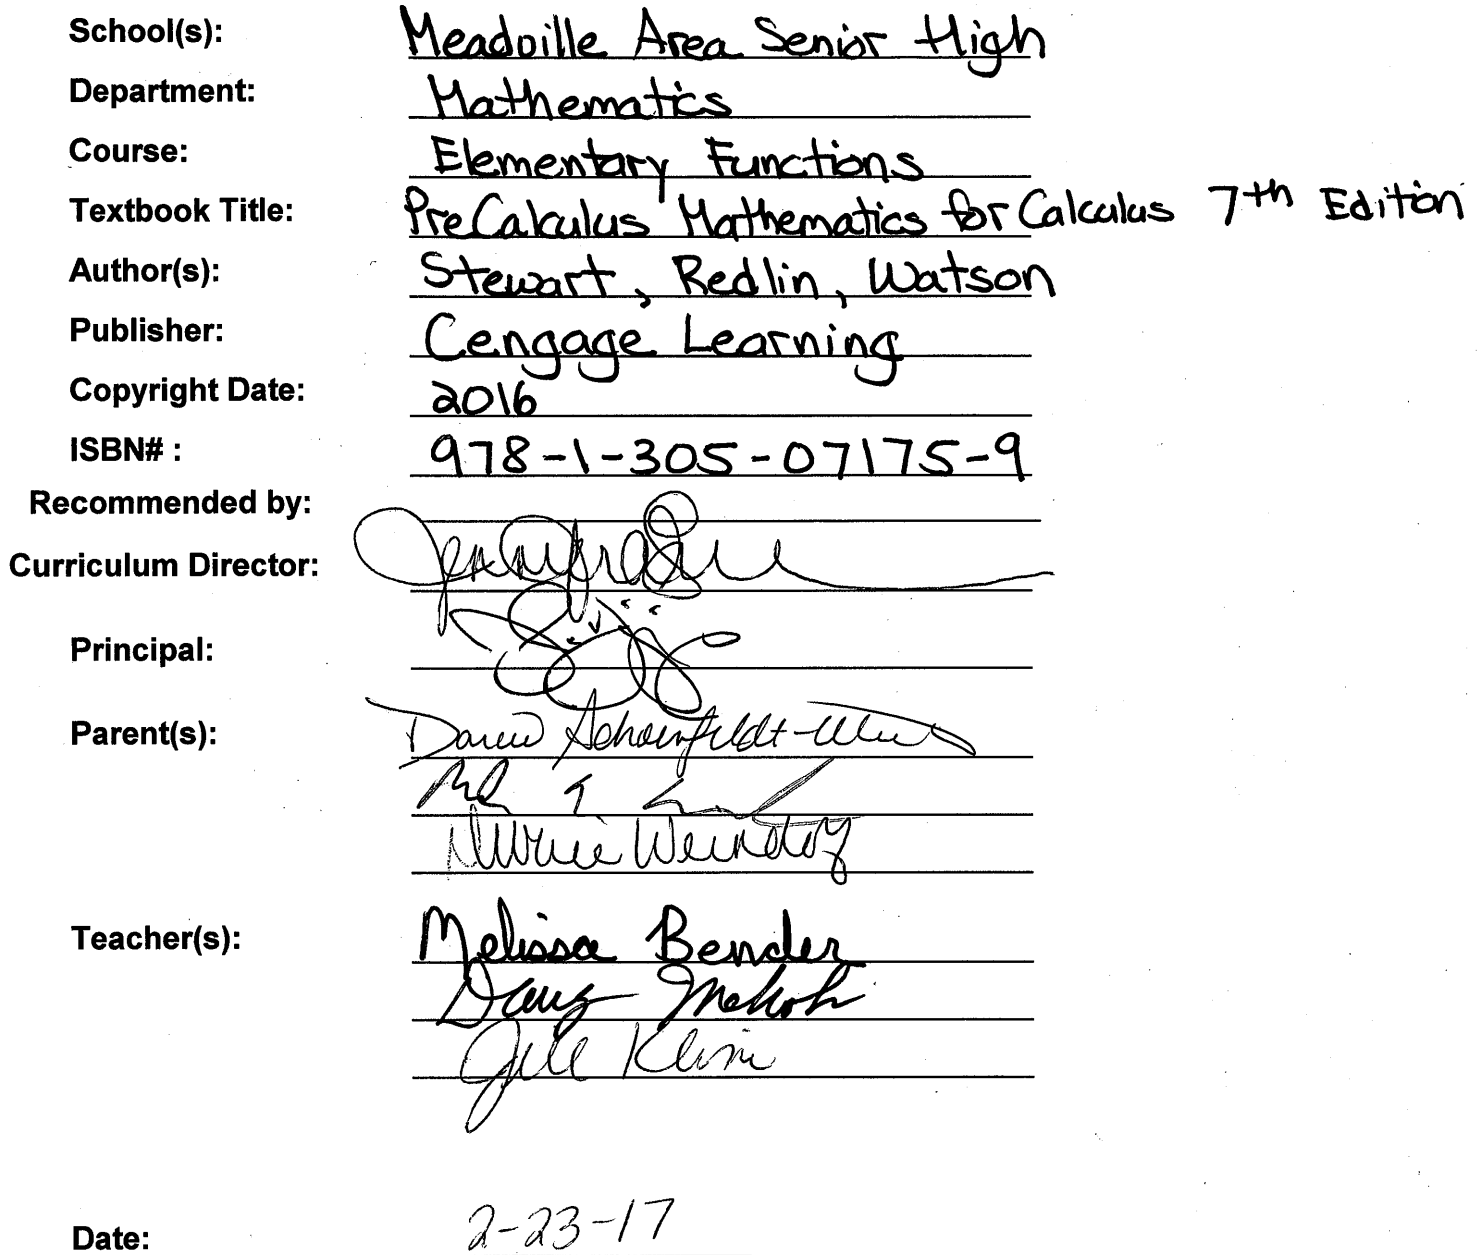 School(s): Meadville Area Senior High
Department: Mathematics
Course: Elementary Functions
Textbook Title: PreCalculus Mathematics for Calculus 7th Edition
Author(s): Stewart, Redlin, Watson
Publisher: Cengage Learning
Copyright Date: 2016
ISBN# : 978-1-305-07175-9
Recommended by:
Curriculum Director:
Principal:
Parent(s):
Teacher(s): Melissa Bender
Doug
Jill
Date: 2-23-17